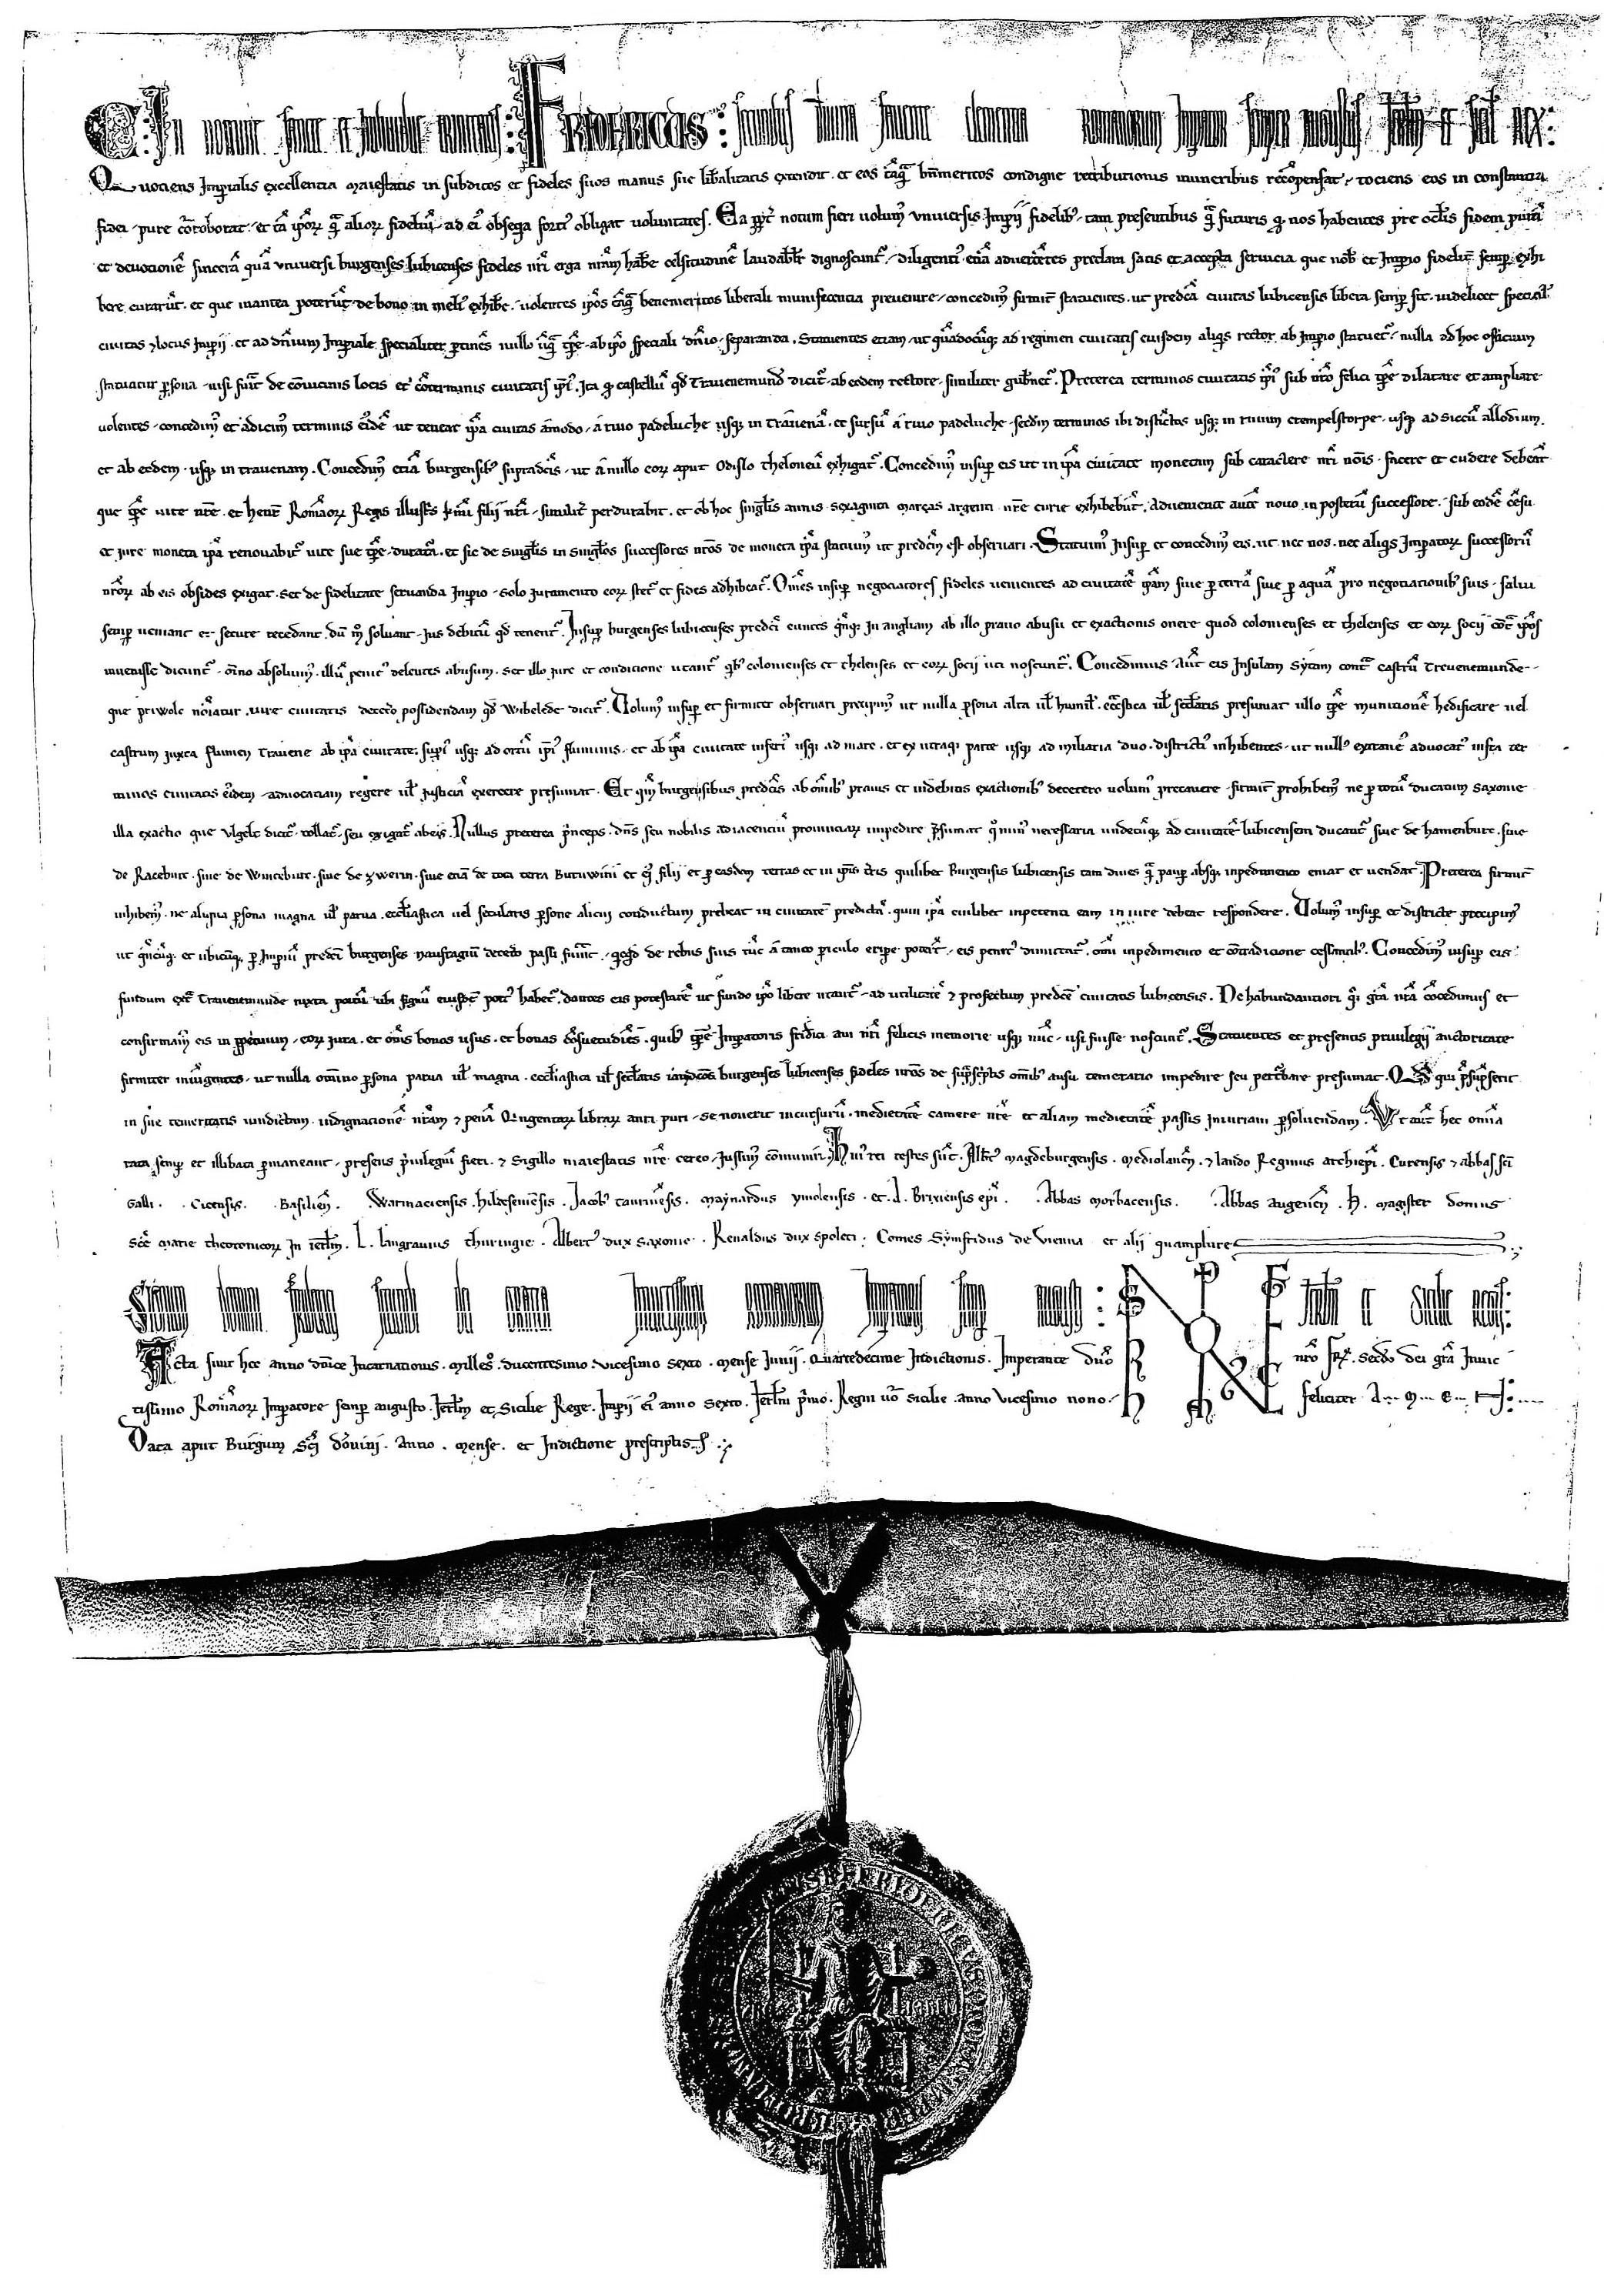 C. In nomine sancte et individue trinitatis: Fridericus: secundus divina favente clementia Romanorum Imperator semper augustus. Ierusalem et Sicilie rex:
Quociens Imp̄ialis excellencia maiestatis in subditos et fideles suos manus sue lib̄alitatis extendit. et eos tāq̄ᵃ bn̄meritos condigne retributionis muneribus recōpensat, tociens eos in constancia
fidei pure cōroborat. et tā ip̄oꝝ q̄ᵃ alioꝝ fideliū ad ei' obseq̄a forci' obligat voluntates. Ea ꝓpt' notum fieri volum' vniversis Imp̄ii fidelib' tam presentibus q̄ᵃ futuris q̄ nos habentes pre oc̄lis fidem purā
et devocionē sincerā quā vniversi burgenses lubicenses fideles nr̄i erga nrām hab̄e celsitudinē laudabl̄r dignoscunt', diligenti' eciā advertētes preclara satis et accepta servicia que nob̄ et Imperio fidelit̄ semꝑ exhi
bere curarūt. et que in antea poterūt de bono in meli' exhib̄e. volentes ip̄os tāq̄ᵃ benemeritos liberali munificencia prevenire, concedim' firmit̄ statuentes. ut predc̄a civitas lubicensis libera semꝑ sit. videlicet special'
civitas ⁊ locus Imp̄ii. et ad dn̄ium Imꝑiale specialiter ꝑtinēs nullo ūq̄ᵃ tꝑe ab ip̄o speciali dn̄io separanda. Statuentes eciam ut quādocūq; ad regimen civitatis eiusdem aliq̄s rector ab Imperio statuet', nulla ad hoc officium
statuatur ꝑsona nisi fūit de cōvicinis locis et cōterminis civitatis ip̄i'. Ita q̄ castellū qd̄ Travenemund̄ dicit' ab eodem rectore similiter gub̄net'. Preterea terminos civitatis ip̄i' sub nr̄o felici tꝑe dilatare et ampliare
volentes concedim' et adicim' terminis ei'dē ut teneat ip̄a civitas āmodo a rivo padeluche usq; in Travenā. et sursū a rivo padeluche secd̄m terminos ibi distīctos usq; in rivum crempelstorpe. usq; ad siccū allodium.
et ab eodem usq; in travenam. Concedim' eciā burgensib' supradc̄is ut a nullo eoꝝ aput Odislo theloneū exhigat'. Concedim' insuꝑ eis ut in ip̄a civitate monetam sub caractere nr̄i nōis facere et cudere debeāt
que tꝑe vite nr̄e. et henr̄ Romāoꝝ Regis illustr̄s kmī filii nr̄i similit̄ perdurabit. et ob hoc singl̄is annis sexaginta marcas argenti nr̄e curie exhibebūt. Adveniente aut̄ novo in posterū successore sub eodē cēsu
et jure moneta ip̄a renovabit' vite sue tꝑe duratā. et sic de singl̄is in singl̄os successores nr̄os de moneta ip̄a statuim' ut predc̄m est observari. Statuim' Insuꝑ et concedim' eis ut nec nos. nec aliq̄s Imperatoꝝ successoꝝ
nr̄oꝝ ab eis obsides exigat. set de fidelitate servanda Imꝑio solo juramento eoꝝ stet' et fides adhibeat'. Om̄es insuꝑ negociatores fideles venientes ad civitatē ip̄am sive ꝑ terrā sive ꝑ aquā pro negociacionib' suis. salvi
semꝑ veniant et secure recedant. dū m° solvant jus debitū qd̄ tenent'. Insuꝑ burgenses lubicenses predc̄i euntes q̄nq; in angliam ab illo pravo abusu et exactionis onere quod colonienses et thelenses et eoꝝ socii cōt̄ ip̄os
invenisse dicunt' om̄no absolvim'. illū penit' delentes abusum. set illo jure et condicione utant' qb' colonienses et thelenses et eoꝝ socii uti noscunt'. Concedimus Aut̄ eis Insulam sytam cont̄ castrū Trevenemunde
que priwolc noīatur jure civitatis decet̄o possidendam qd̄ Wibelede dicit'. Volum' insuꝑ et firmiter observari precipim' ut nulla ꝑsona alta ul̄ humil'. ecc̄astica ul̄ secl̄aris presumat ullo tꝑe municionē hedificare vel
castrum juxta flumen travene ab ip̄a civitate. supi' usq; ad ortū ip̄i' fluminis. et ab ip̄a civitate inferi' usq; ad mare. et ex utraq; parte usq; ad miliaria duo. districti' inhibentes. ut null' extrane' advocat' infra ter
minos civitatis ei'dem advocaciam regere ul̄ justiciā exercere presumat. Et q̄m burgensibus predc̄is ab om̄ib' pravis et indebitis exactionib' decetero volum' precavere firmit̄ prohibem' ne ꝑ totū ducatum Saxonie
illa exactio que Vlgelt dicit' tollat' seu exigat' ab eis. Nullus preterea p̄nceps. dn̄s seu nobilis adiacenciū provinciaꝝ impedire p̄sumat q̄ min' necessaria undecūq; ad civitatē lubicensem ducant' sive de hamenburc. sive
de Raceburc. sive de Winceburc. sive de zwerin. sive eciā de tota terra Buruwini et ei' filii et ꝑ easdem terras et in ip̄is t̄ris quilibet Burgensis lubicensis tam dives q̄ᵃ pauꝑ absq; impedimento emat et vendat. Preterea firmit̄
inhibem'. ne aliqua ꝑsona magna ul̄ parva. eccl̄iastica vel secularis ꝑsone alicui conductum prebeat in civitatē predictā. quin ip̄a cuilibet inpetenti eam in jure debeat respondere. Volum' insuꝑ et districte precipim'
ut q̄ncūq; et ubicūq; ꝑ Imꝑiū predc̄i burgenses naufragiū decet̄o passi fu̅int. qcqd̄ de rebus suis tūc a tanto ꝑiculo eripe poterīt. eis penit' dimittat'. om̄i impedimento et cōtradicione cessantib'. Concedim' insuꝑ eis
fundum ext̄ Travenemunde juxta portū ubi signū eiusdē port' habet'. dantes eis potestatē ut fundo ip̄o libere utant'. ad utilitatē ⁊ profectum predc̄e civitatis lubicensis. De habundantiori q̄i gr̄a nr̄a cōcedimus et
confirmam' eis in ꝑpetuum. eoꝝ jura. et om̄is bonos usus. et bonas cōsuetudiēs. quib' tꝑe Imperatoris frid̄ici avi nr̄i felicis memorie usq; nūc usi fuisse noscunt'. Statuentes et presentis privilegii auctoritate
firmiter iniūgentes. ut nulla omnino ꝑsona parva ul̄ magna. eccl̄iastica ul̄ secl̄aris jamdc̄os burgenses lubicenses fideles nr̄os de sup̄sc̄ptis om̄ib' ausu temerario impedire seu pertūbare presumat. Qd̄ qui p̄sūpserit
in sue temeritatis vindictam. indignacionē nr̄am ⁊ penā Qingentaꝝ libraꝝ auri puri se noverit incursurū. medietatē camere nr̄e et aliam medietatē passis injuriam ꝑsolvendam. Vt aut̄ hec om̄ia
rata semꝑ et illibata ꝑmaneant. presens p̄vilegiū fieri. ⁊ sigillo maiestatis nr̄e cereo jussim' cōmuniri. Hui' rei testes sūt. Alb̄t' magdeburgensis. mediolanēn. ⁊ lando Reginus archiep̄i. Curensis ⁊ abbas sc̄i
Galli. . Cicensis. . Basiliēn. . Warmaciensis. hildesemēsis. Jacob' taurinēsis. maynardus ymolensis. et. A. Brixiensis epī. . Abbas morbacensis. . Abbas augenēn. H. magister domus
Sc̄e marie theotonicoꝝ in ierl̄m. L. langravius thuringie. Albert' dux saxonie. Renaldus dux spoleti. Comes Symfridus de vienna et alii quamplures.
Signum domini Friderici secundi dei gratia invictissimi Romanorum Imperatoris semper augusti: Ierusalem et Sicilie regis:
Acta sunt hec anno dn̄ice Incarnationis. milles̄. ducentesimo vicesimo sexto. mense Junii. Quartedecime Indictionis. Imperante dn̄o nr̄o FR̄. secd̄o dei gr̄a Invic
tissimo Romāoꝝ Imperatore semꝑ augusto. Ierl̄m et Sicilie Rege. Imꝑii ei' anno sexto. Ierl̄m p̄mo. Regni v° sicilie anno vicesimo nono. feliciter A... M... E... N
Data aput Burgum Sc̄i dōnini. Anno. mense. et Indictione prescriptis.